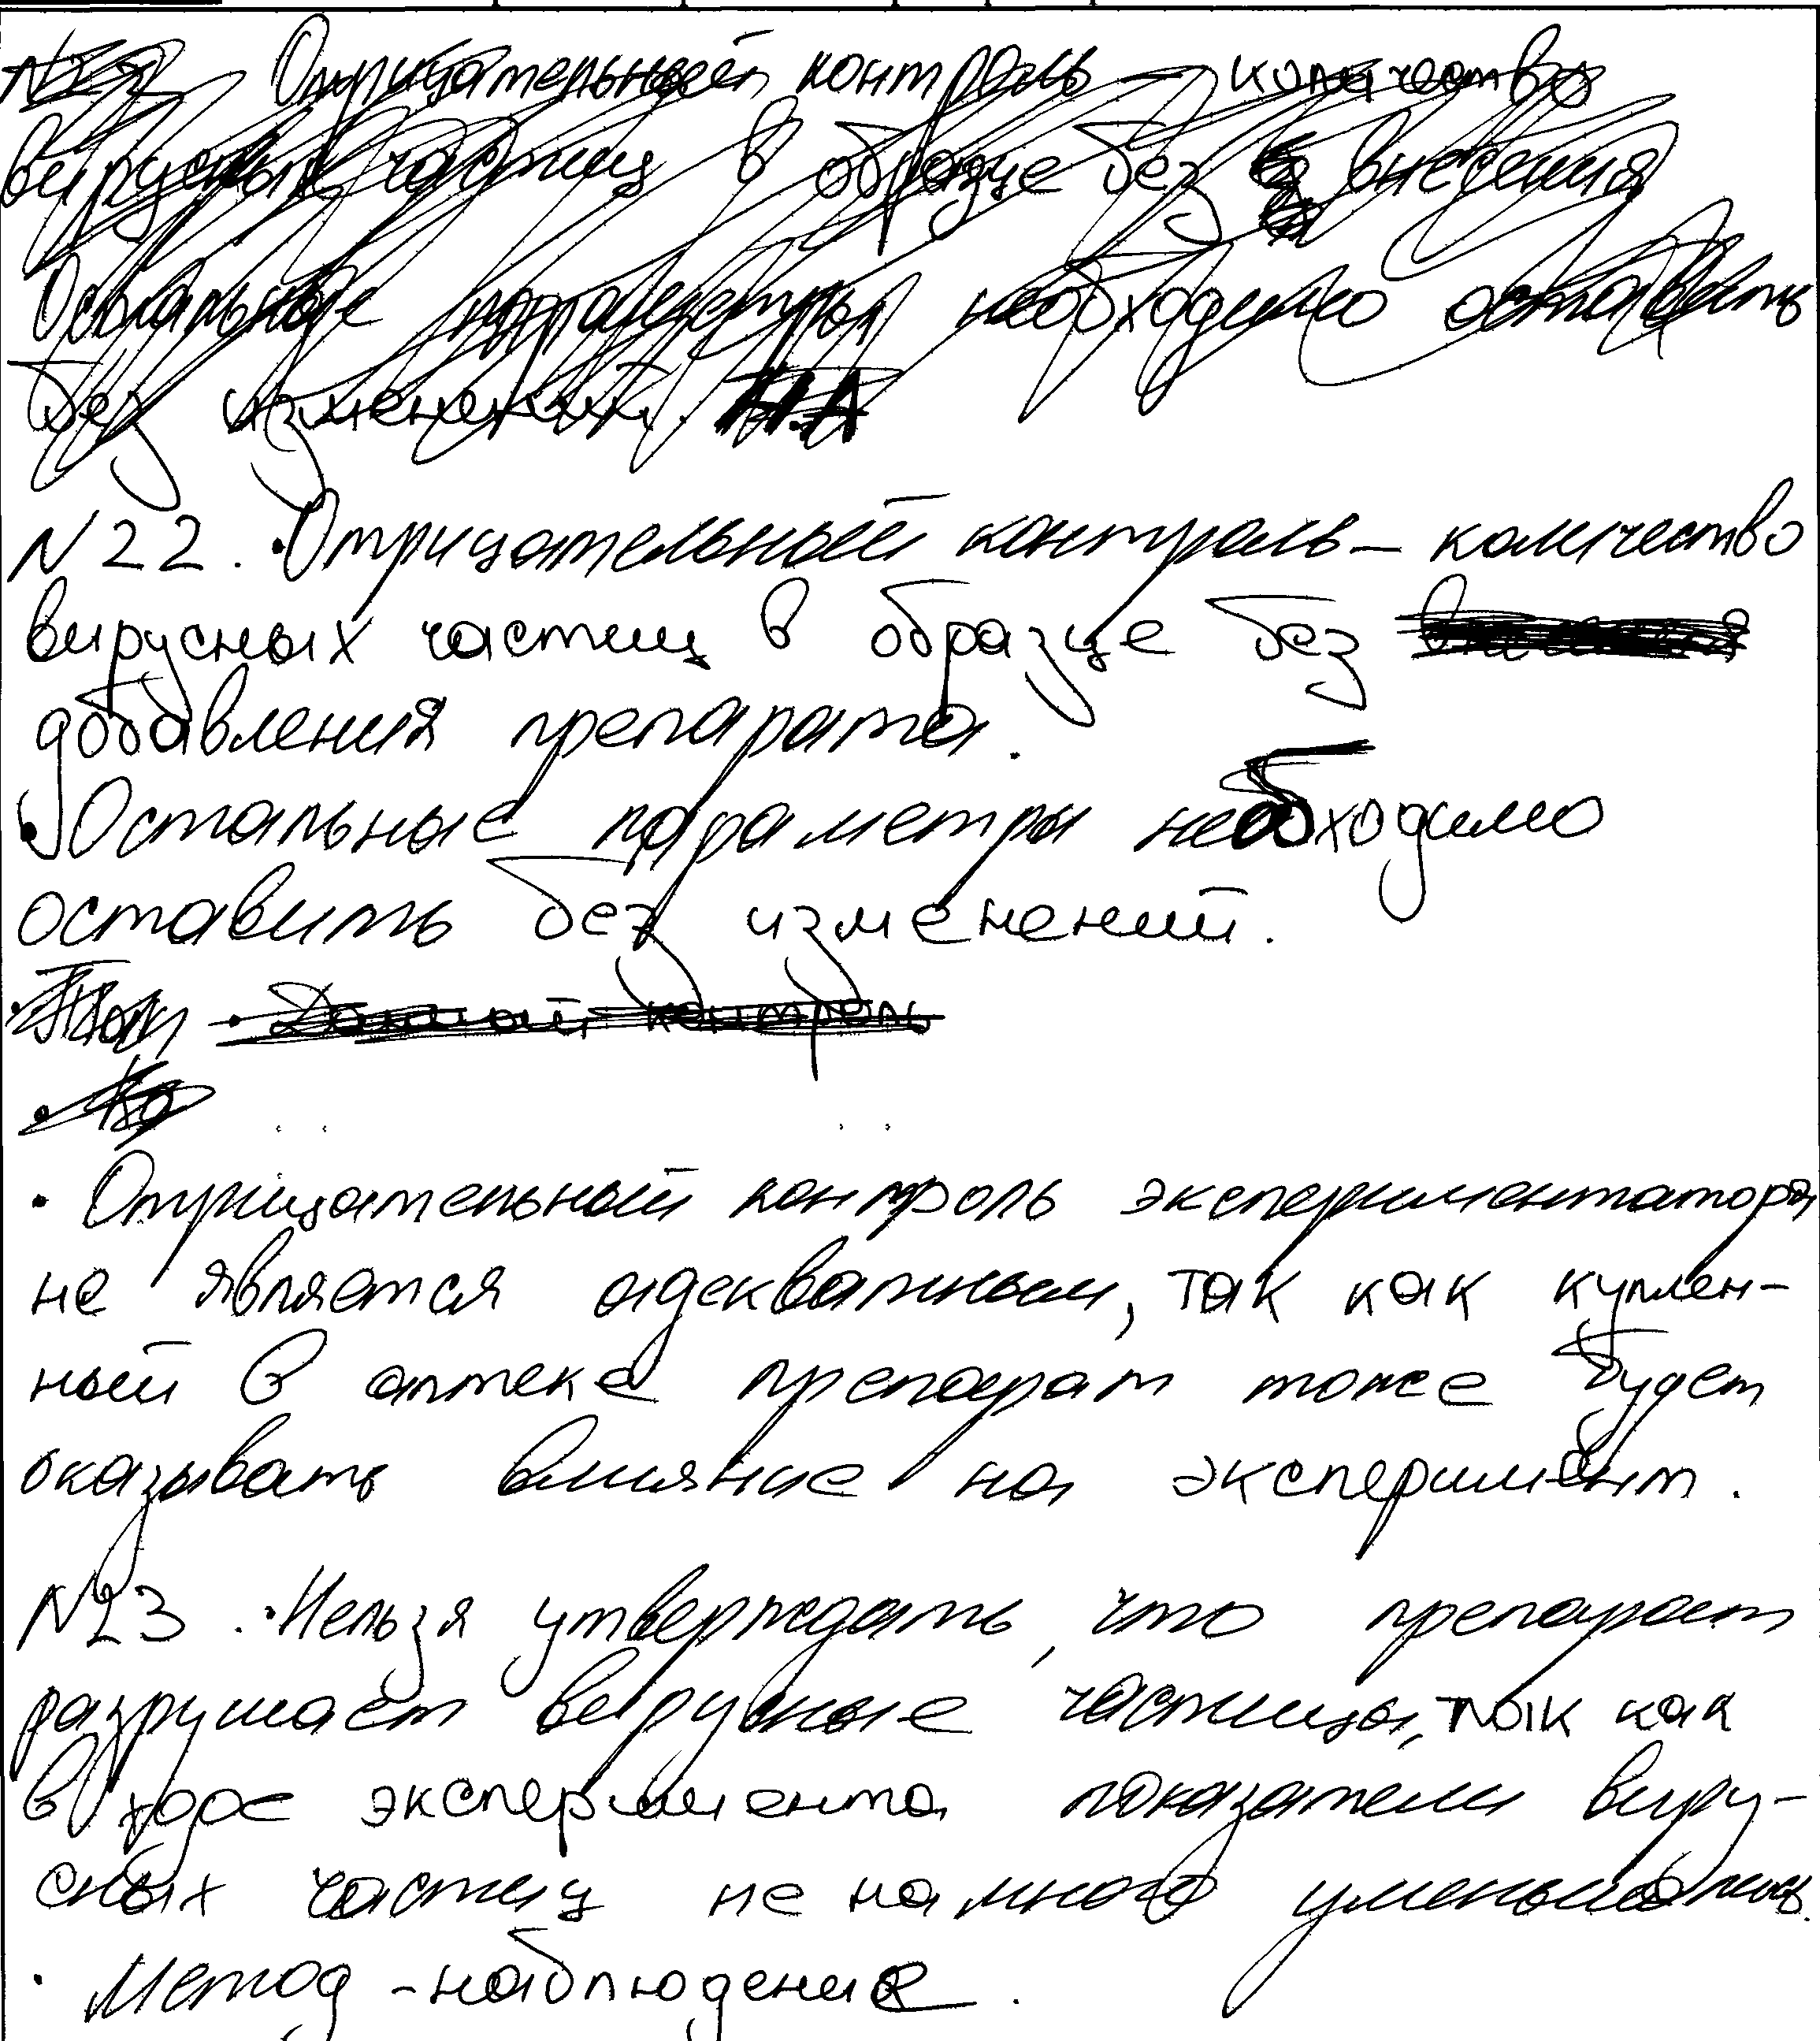 N22 Отрицательный контроль – количество
вирусных частиц в образце без внесения
Остальные параметры необходимо оставить
без изменений.
N22. • Отрицательный контроль – количество
вирусных частиц в образце без
добавления препарата.
• Остальные параметры необходимо
оставить без изменений.
• Данный контроль
• Отрицательный контроль экспериментатора
не является адекватным, так как куплен-
ный в аптеке препарат тоже будет
оказывать влияние на эксперимент.
N23. • Нельзя утверждать, что препарат
разрушает вирусные частицы, так как
в ходе эксперимента показатели виру-
сных частиц не намного уменьшились.
• Метод – наблюдение.